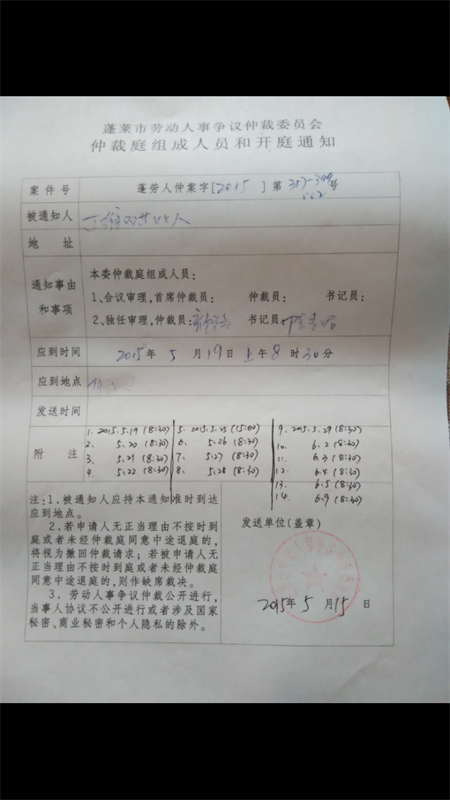 蓬莱市劳动人事争议仲裁委员会
仲裁庭组成人员和开庭通知
案件号 蓬劳人仲案字[2015]第 号
被通知人
地 址
通知事由和事项
本委仲裁庭组成人员：
1、合议审理，首席仲裁员： 仲裁员： 书记员：
2、独任审理，仲裁员： 书记员：
应到时间 2015年5月19日上午8时30分
应到地点
发送时间
附 注
1. 2015.5.19 (8:30)
2. 5.20 (8:30)
3. 5.21 (8:30)
4. 5.22 (8:30)
5. 2015.5.25 (15:00)
6. 5.26 (8:30)
7. 5.27 (8:30)
8. 5.28 (8:30)
9. 2015.5.29 (8:30)
10. 6.2 (8:30)
11. 6.3 (8:30)
12. 6.4 (8:30)
13. 6.5 (8:30)
14. 6.9 (8:30)
注：1.被通知人应持本通知准时到达
应到地点。
2.若申请人无正当理由不按时到
庭或者未经仲裁庭同意中途退庭的，
将视为撤回仲裁请求；若被申请人无
正当理由不按时到庭或者未经仲裁庭
同意中途退庭的，则作缺席裁决。
3.劳动人事争议仲裁公开进行，
当事人协议不公开进行或者涉及国家
秘密、商业秘密和个人隐私的除外。
发送单位(盖章)
2015年5月15日